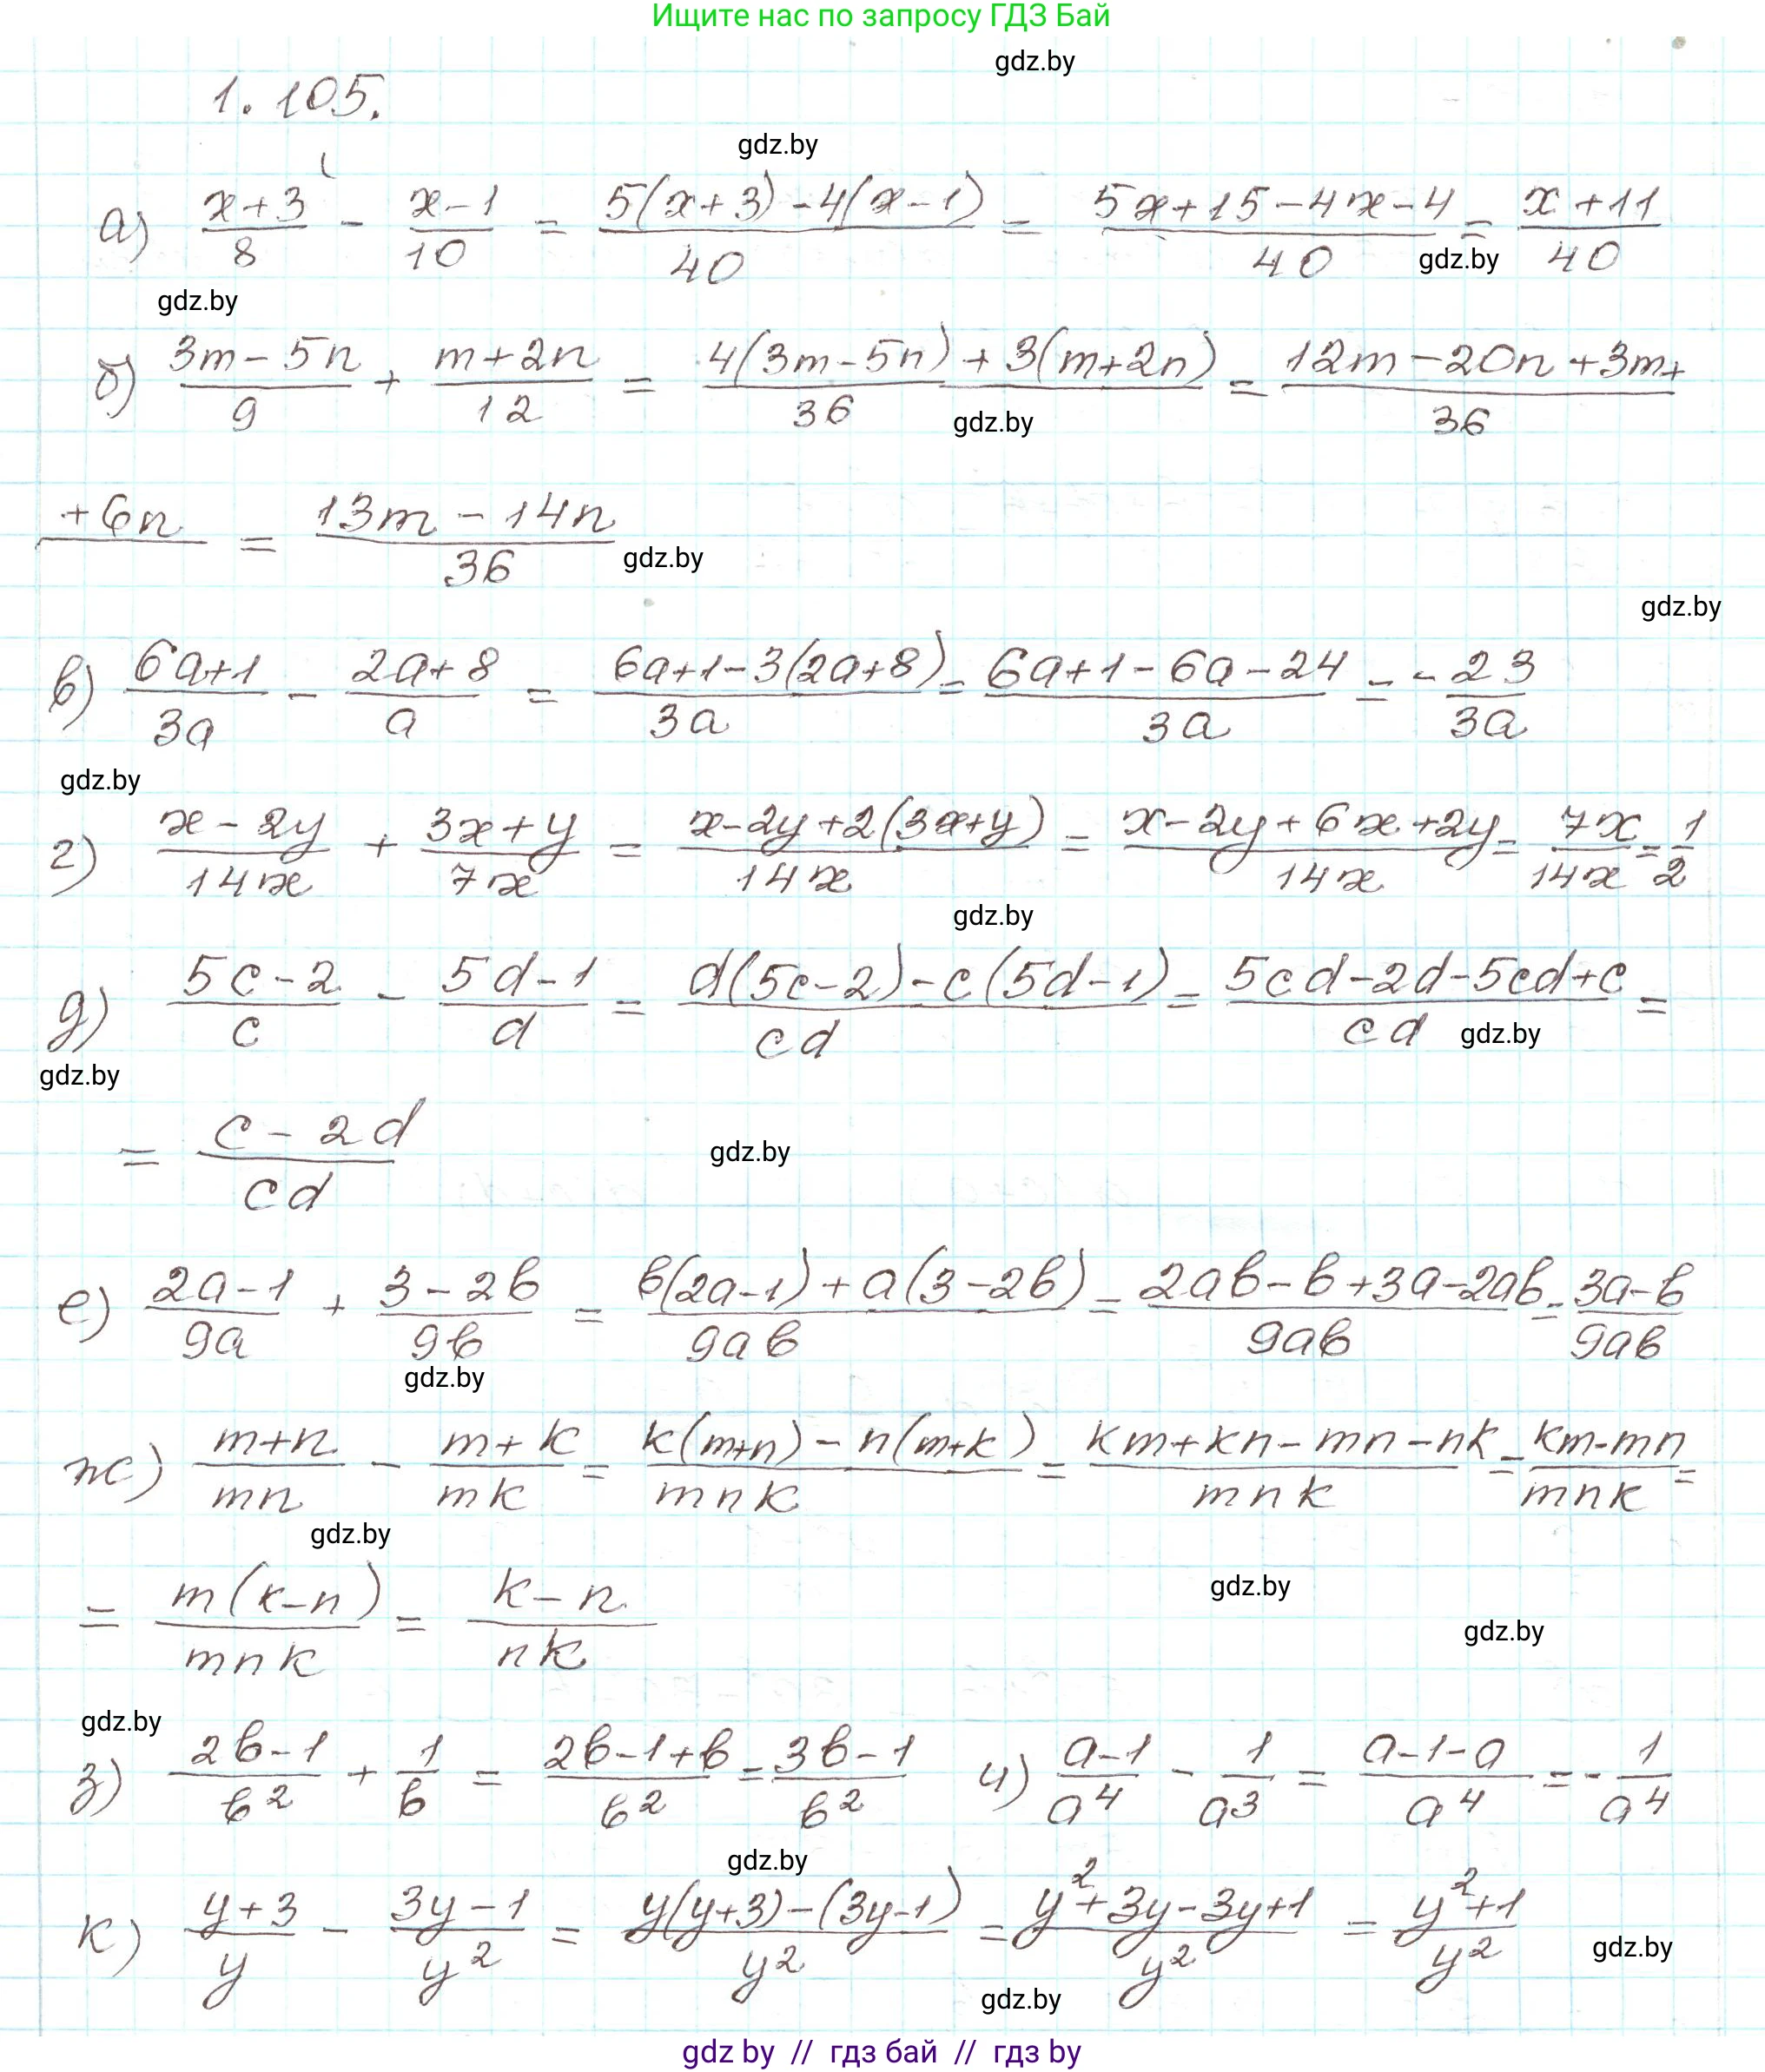 Ищите нас по запросу ГДЗ Бай
gdz.by
1.105.
gdz.by
а) (x+3)/8 - (x-1)/10 = (5(x+3)-4(x-1))/40 = (5x+15-4x-4)/40 = (x+11)/40
gdz.by
gdz.by
б) (3m-5n)/9 + (m+2n)/12 = (4(3m-5n)+3(m+2n))/36 = (12m-20n+3m+)/36
gdz.by
+6n = (13m-14n)/36
gdz.by
gdz.by
в) (6a+1)/3a - (2a+8)/a = (6a+1-3(2a+8))/3a = (6a+1-6a-24)/3a = -23/3a
gdz.by
г) (x-2y)/14x + (3x+y)/7x = (x-2y+2(3x+y))/14x = (x-2y+6x+2y)/14x = 7x/14x = 1/2
gdz.by
д) (5c-2)/c - (5d-1)/d = (d(5c-2)-c(5d-1))/cd = (5cd-2d-5cd+c)/cd =
gdz.by
gdz.by
= (c-2d)/cd
gdz.by
е) (2a-1)/9a + (3-2b)/9b = (b(2a-1)+a(3-2b))/9ab = (2ab-b+3a-2ab)/9ab = (3a-b)/9ab
gdz.by
ж) (m+n)/mn - (m+k)/mk = (k(m+n)-n(m+k))/mnk = (km+kn-mn-nk)/mnk = (km-mn)/mnk =
gdz.by
= m(k-n)/mnk = (k-n)/nk
gdz.by
gdz.by
gdz.by
з) (2b-1)/b² + 1/b = (2b-1+b)/b² = (3b-1)/b² и) (a-1)/a⁴ - 1/a³ = (a-1-a)/a⁴ = -1/a⁴
gdz.by
к) (y+3)/y - (3y-1)/y² = (y(y+3)-(3y-1))/y² = (y²+3y-3y+1)/y² = (y²+1)/y²
gdz.by
gdz.by
gdz by // гдз бай // гдз by